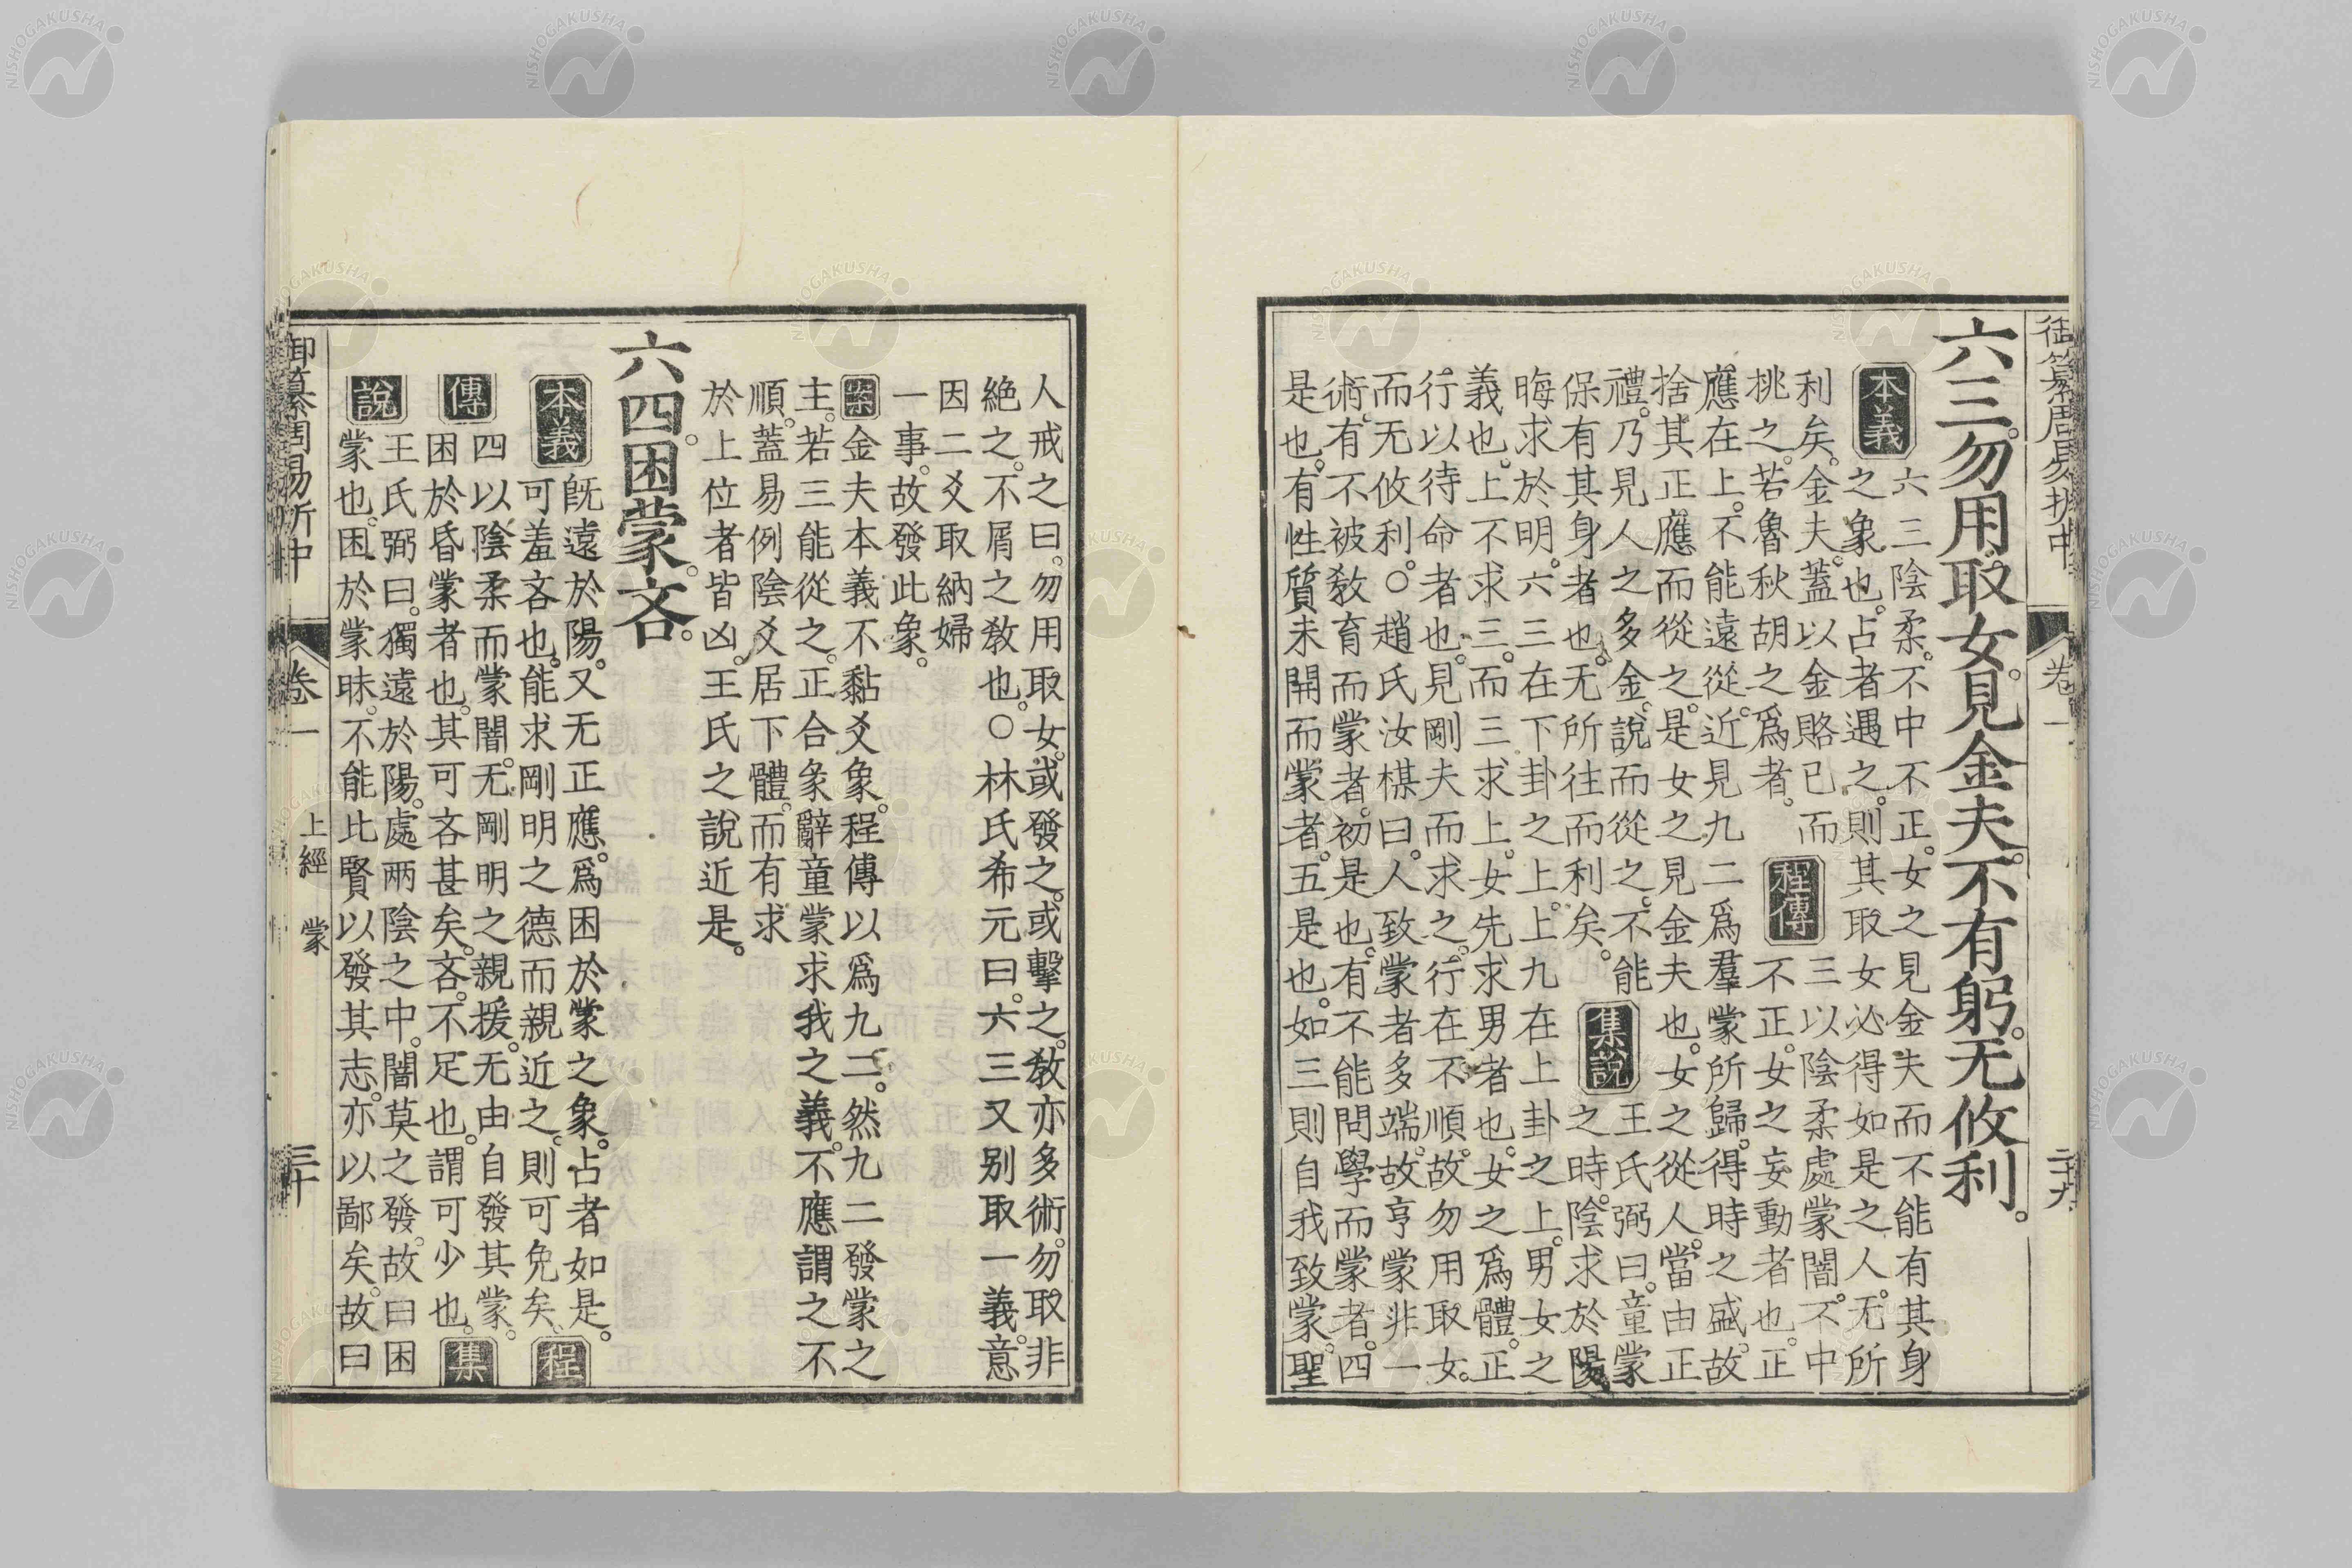 御纂周易折中 卷一 二十九
六三。勿用取女。見金夫。不有躬。无攸利。
本義
六三陰柔。不中不正。女之見金夫而不能有其身
之象也。占者遇之。則其取女必得如是之人。无所
利矣。金夫。蓋以金賂已而
挑之。若魯秋胡之爲者。
程傳
三以陰柔處蒙闇。不中
不正。女之妄動者也。正
應在上。不能遠從。近見九二爲羣蒙所歸。得時之盛。故
捨其正應而從之。是女之見金夫也。女之從人。當由正
禮。乃見人之多金。說而從之。不能
保有其身者也。无所往而利矣。
集說
王氏弼曰。童蒙
之時。陰求於陽。
晦求於明。六三在下卦之上。上九在上卦之上。男女之
義也。上不求三。而三求上。女先求男者也。女之爲體。正
行以待命者也。見剛夫而求之。行在不順。故勿用取女。
而无攸利。○趙氏汝楳曰。人致蒙者多端。故亨蒙非一
術。有不被敎育而蒙者。初是也。有不能問學而蒙者。四
是也。有性質未開而蒙者。五是也。如三則自我致蒙。聖
人戒之曰。勿用取女。或發之。或擊之。敎亦多術。勿取非
絶之。不屑之敎也。○林氏希元曰。六三又别取一義。意
因二爻取納婦
一事。故發此象。
案 金夫本義不黏爻象。程傳以爲九二。然九二發蒙之
主。若三能從之。正合彖辭童蒙求我之義。不應謂之不
順。蓋易例陰爻居下體。而有求
於上位者皆凶。王氏之說近是。
六四。困蒙。吝。
本義
旣遠於陽。又无正應。爲困於蒙之象。占者如是。
可羞吝也。能求剛明之德而親近之。則可免矣。
程傳
四以陰柔而蒙闇。无剛明之親援。无由自發其蒙。
困於昏蒙者也。其可吝甚矣。吝。不足也。謂可少也。
集說
王氏弼曰。獨遠於陽。處兩陰之中。闇莫之發。故曰困
蒙也。困於蒙昧。不能比賢以發其志。亦以鄙矣。故曰
御纂周易折中 卷一 上經 蒙 三十